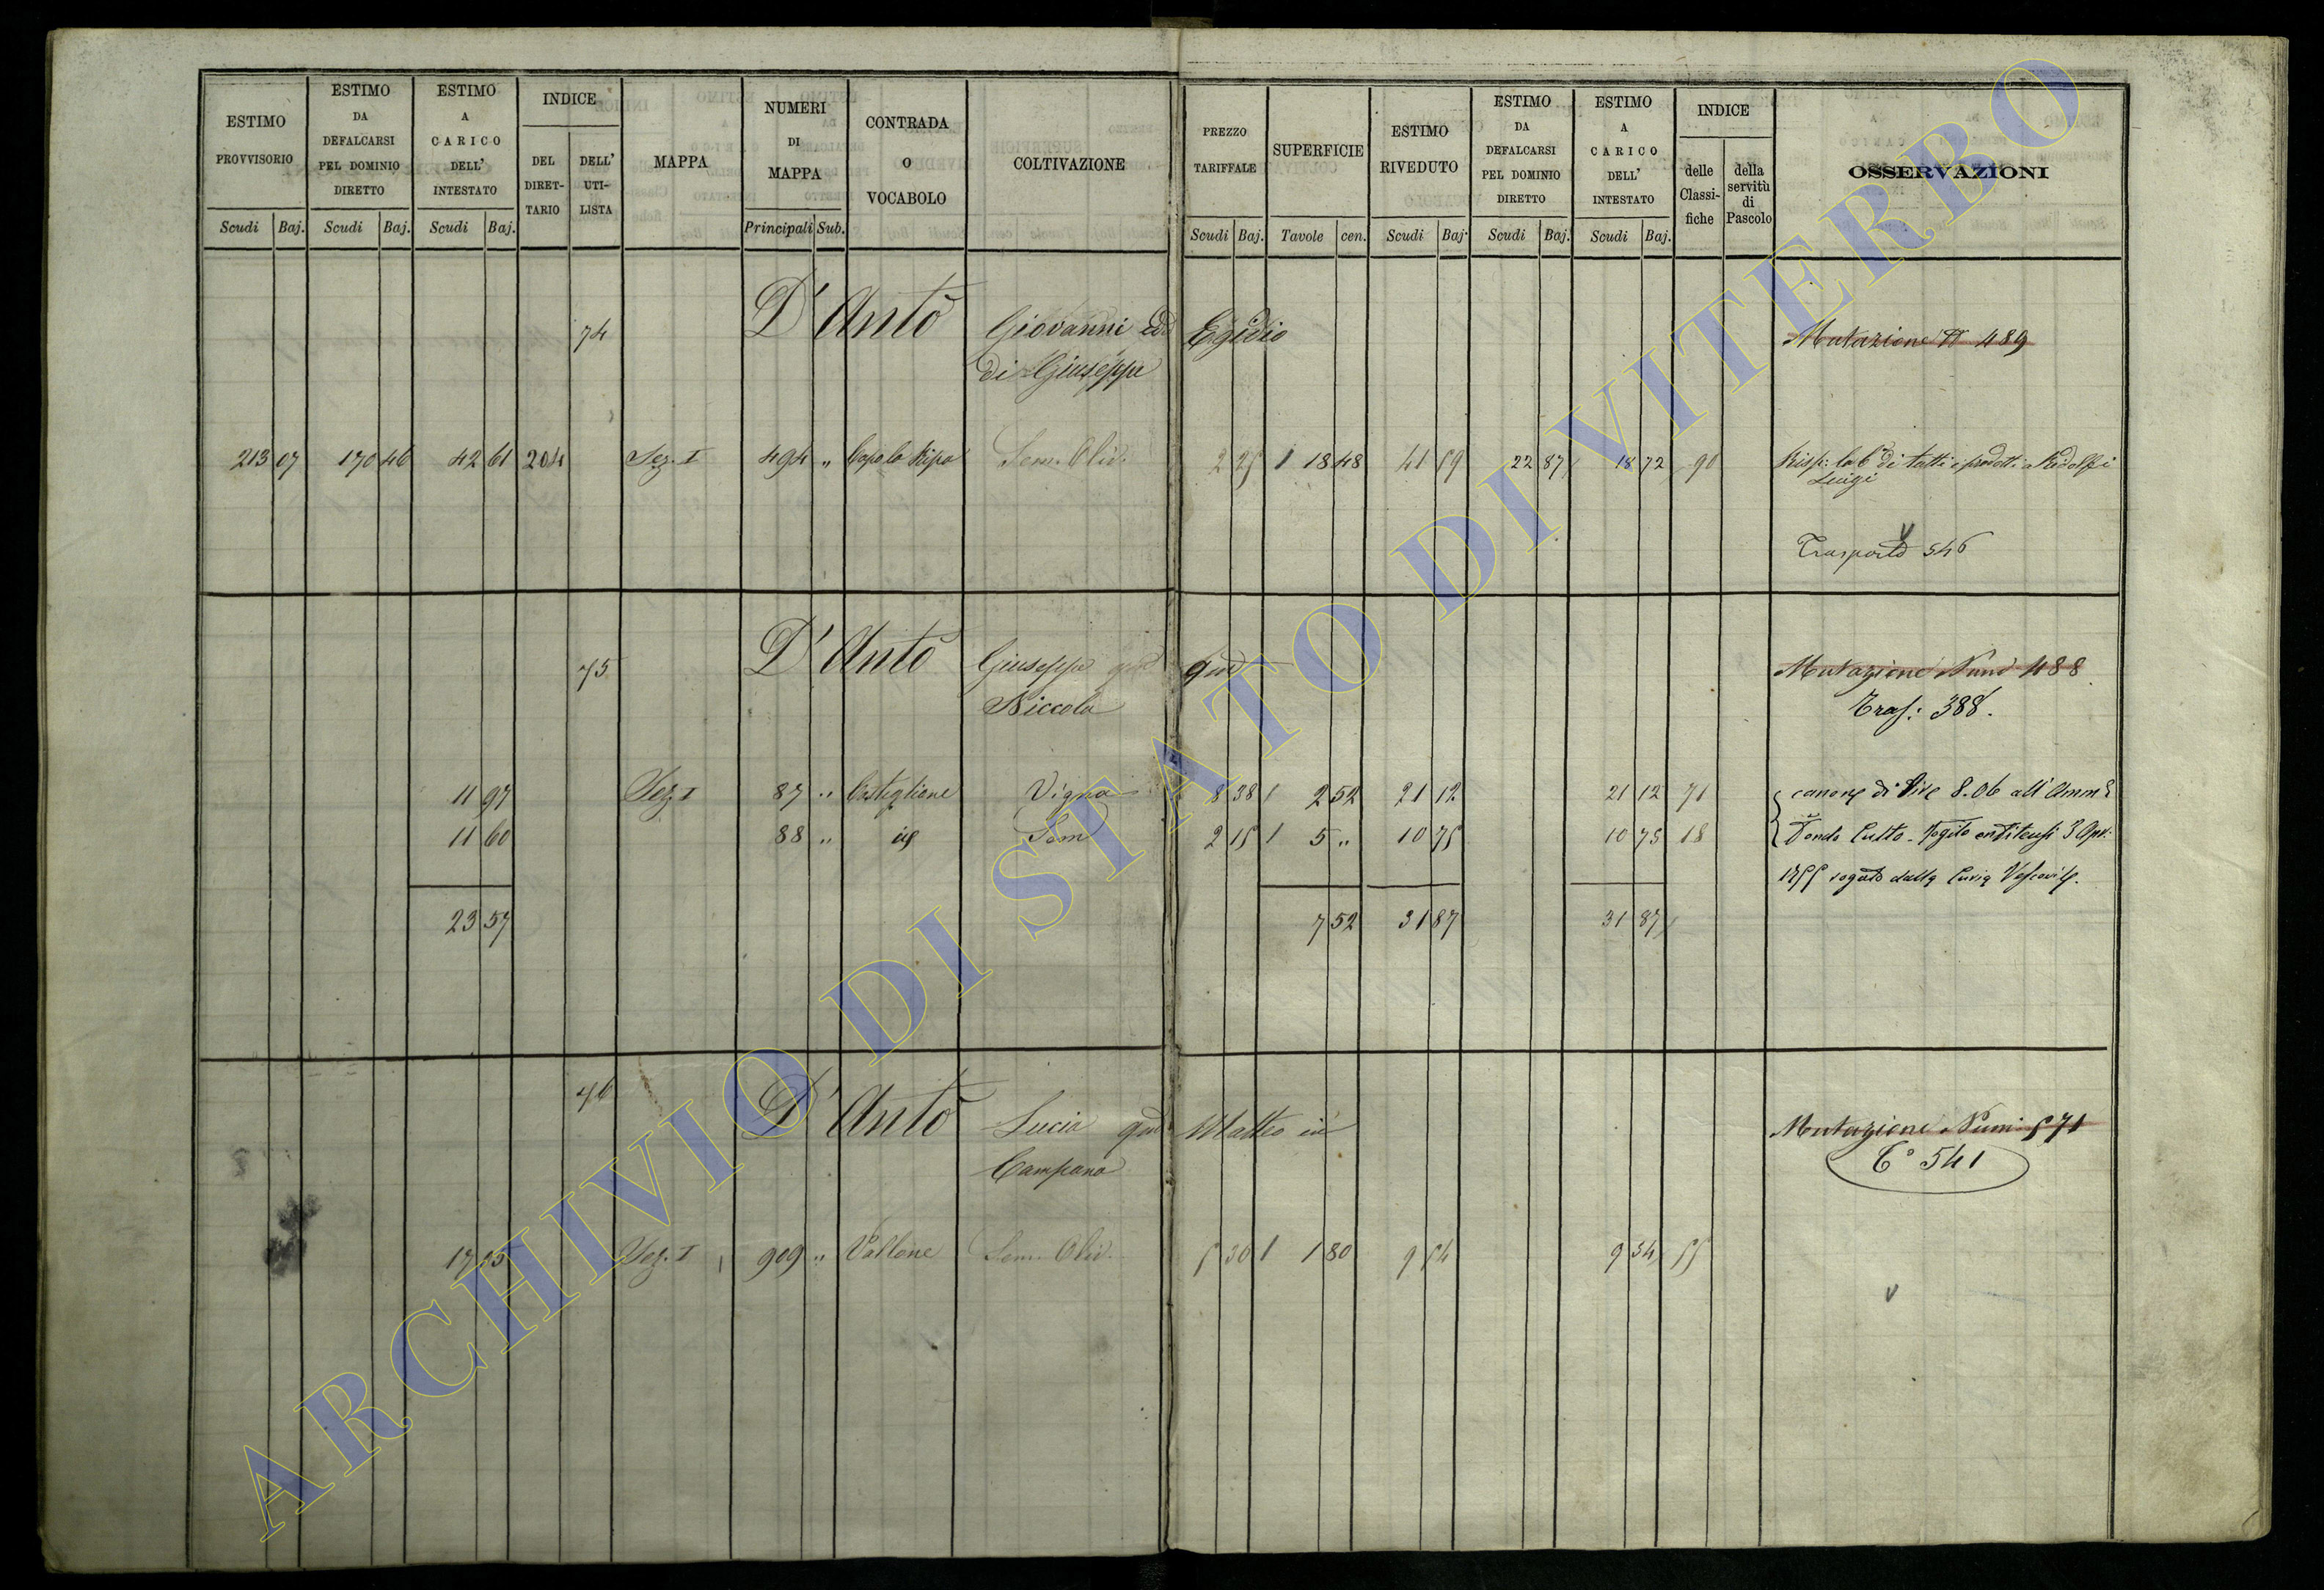 ESTIMO PROVVISORIO Scudi Baj.
ESTIMO DA DEFALCARSI PEL DOMINIO DIRETTO Scudi Baj.
ESTIMO A CARICO DELL' INTESTATO Scudi Baj.
INDICE DEL DIRET-TARIO DELL' UTI-LISTA
MAPPA
NUMERI DI MAPPA Principali Sub.
CONTRADA O VOCABOLO
COLTIVAZIONE
PREZZO TARIFFALE Scudi Baj.
SUPERFICIE Tavole cen.
ESTIMO RIVEDUTO Scudi Baj.
ESTIMO DA DEFALCARSI PEL DOMINIO DIRETTO Scudi Baj.
ESTIMO A CARICO DELL' INTESTATO Scudi Baj.
INDICE delle Classi-fiche della servitù di Pascolo
OSSERVAZIONI
74 D'Antò Giovanni ed Egidio Mutazione N 489
di Giuseppe
213 07 170 46 42 61 204 Sez. I 494 " Capo la Ripa Sem. Oliv. 2 25 18 48 41 59 22 87 18 72 90 Risp: la 6 di tutti i prodotti a Ridolfi
Luigi
Trasporto 546
75 D'Antò Giuseppe qm qm Mutazione Num 488
Niccola Tras: 388.
11 97 Sez. I 87 " Castiglione Vigna 8 38 2 52 21 12 21 12 71 canone di Lire 8.06 all' Amm
11 60 88 " id Sem 2 15 5 " 10 75 10 75 18 Fondo Culto - Rogito enfiteusi 3 Apr.
rogato dalla Curia Vescovile.
23 57 7 52 31 87 31 87
76 D'Antò Lucia qm Matteo in Mutazione Num 571
Campana T° 541
Sez. I 909 " Vallone Sem. Oliv. 5 30 1 80 9 54 9 54 55
ARCHIVIO DI STATO DI VITERBO